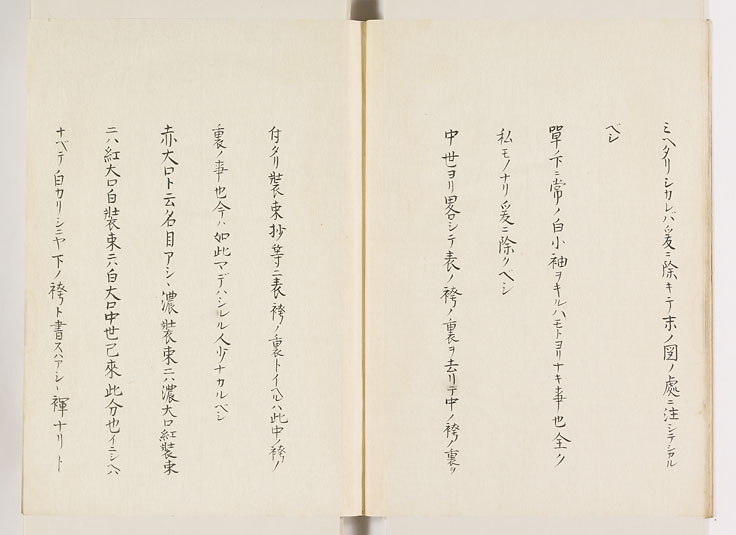 ミヘタリシカレバ爰ニ除キテ末ノ図ノ處ニ注シテシカル
ベシ
單ノ下ニ常ノ白小袖ヲキルハモトヨリナキ事也全ク
私モノナリ爰ニ除クベシ
中世ヨリ畧シテ表ノ袴ノ裏ヲ去リテ中ノ袴ノ裏ヲ
付タリ裝束抄等ニ表袴ノ裏トイヘルハ此中ノ袴ノ
裏ノ事也今ハ如此マデハシレル人少ナカルベシ
赤大口ト云名目アシヽ濃裝束ニハ濃大口紅裝束
ニハ紅大口白裝束ニハ白大口中世已來此分也イニシヘハ
ナベテ白カリシニヤ下ノ袴ト書スハアシヽ褌ナリト